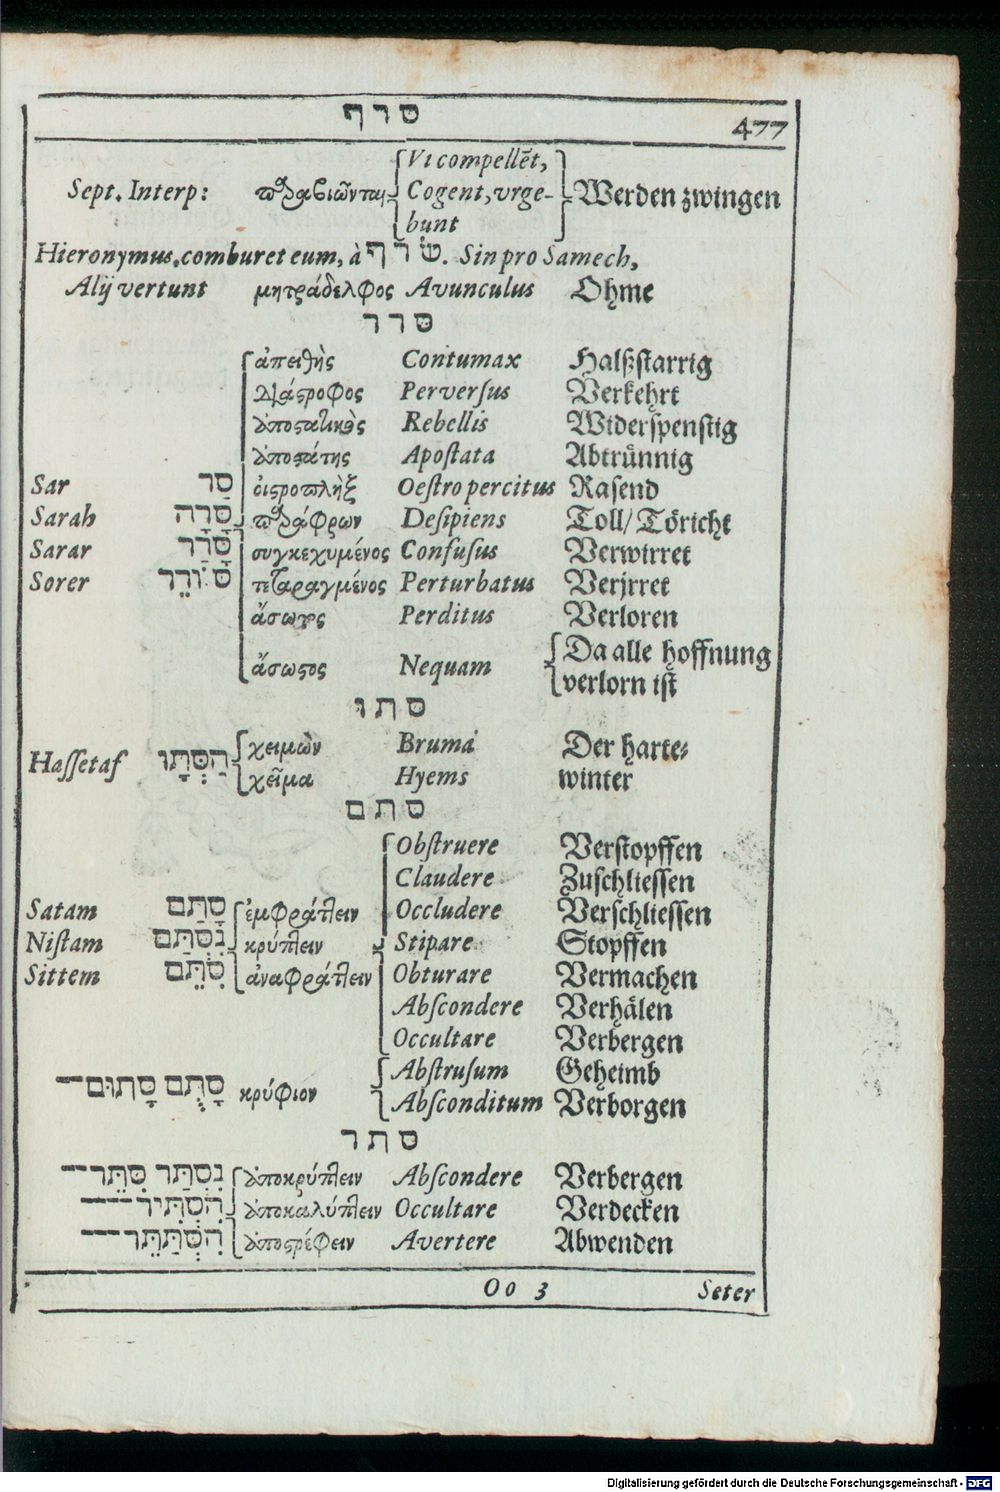 סרף
477
Vi compellēt,
Sept. Interp: παραβιῶνται Cogent, vrge- Werden zwingen
bunt
Hieronymus, comburet eum, à שׂרף. Sin pro Samech,
Alij vertunt μητράδελφος Avunculus Ohme
סרר
ἀπειθὴς Contumax Halßstarrig
διάστροφος Perversus Verkehrt
ἀποστατικὸς Rebellis Widerspenstig
ἀποστάτης Apostata Abtrünnig
Sar סַר οἰστροπλὴξ Oestro percitus Rasend
Sarah סָרָה παράφρων Desipiens Toll/ Töricht
Sarar סָרַר συγκεχυμένος Confusus Verwirret
Sorer סוֹרֵר τεταραγμένος Perturbatus Verjrret
ἄσωτος Perditus Verloren
Da alle hoffnung
ἄσωστος Nequam
verlorn ist
סתו
χειμὼν Bruma Der harte-
Hassetaf הַסְּתָו
χεῖμα Hyems winter
סתם
Obstruere Verstopffen
Claudere Zuschliessen
Satam סָתַם ἐμφράττειν Occludere Verschliessen
Nistam נִסְתַּם κρύπτειν Stipare Stopffen
Sittem סִתֵּם ἀναφράττειν Obturare Vermachen
Abscondere Verhälen
Occultare Verbergen
Abstrusum Geheimb
סָתֻם סָתוּם— κρύφιον
Absconditum Verborgen
סתר
נִסְתַּר סִתֵּר— ἀποκρύπτειν Abscondere Verbergen
הִסְתִּיר— ἀποκαλύπτειν Occultare Verdecken
הִסְתַּתֵּר— ἀποστρέφειν Avertere Abwenden
Oo 3 Seter
Digitalisierung gefördert durch die Deutsche Forschungsgemeinschaft - DFG